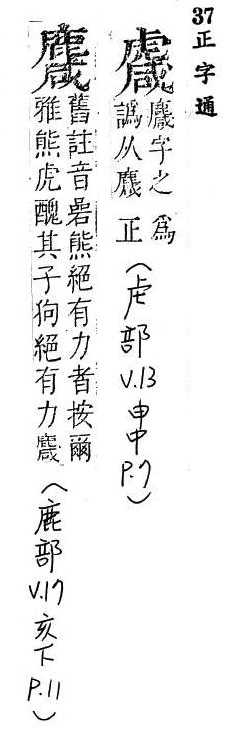 37 正字通
麙字之為
譌从麙正
(虍部 V.13 申中 P.7)
麙
舊註音熊絕有力者按爾
雅熊虎醜其子狗絕有力麙
(鹿部 V.17 亥下 P.11)